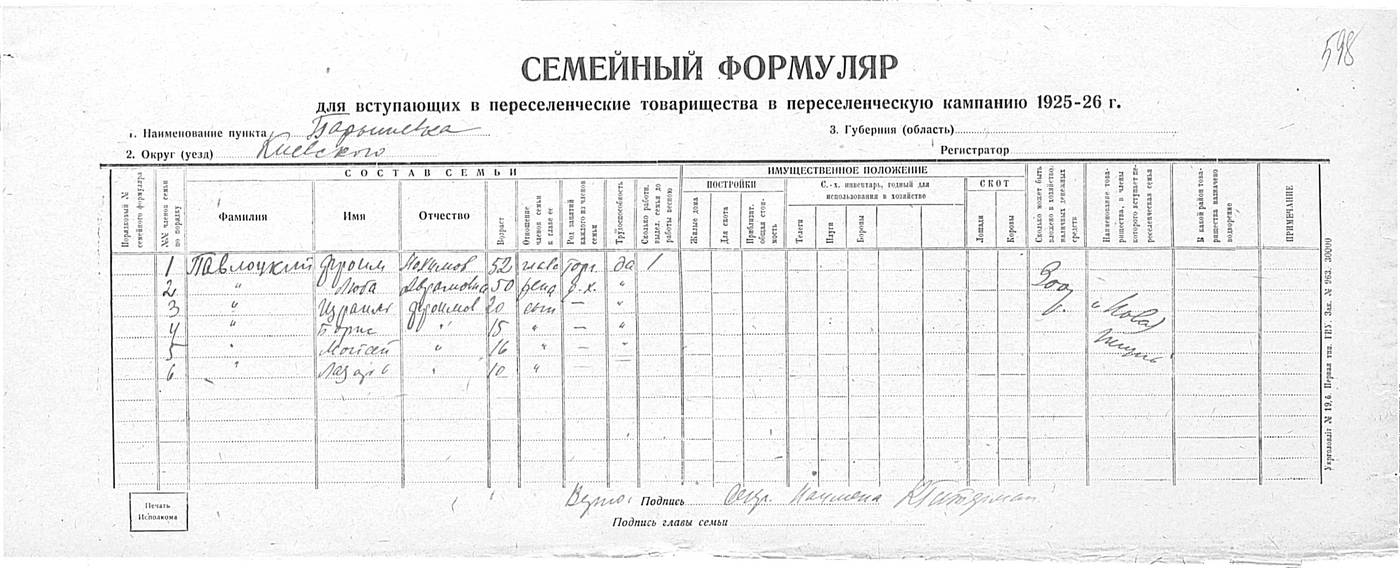 598
СЕМЕЙНЫЙ ФОРМУЛЯР
для вступающих в переселенческие товарищества в переселенческую кампанию 1925-26 г.
1. Наименование пункта Барышевка
3. Губерния (область)
2. Округ (уезд) Киевского
Регистратор
Порядковый № семейного формуляра
№№ членов семьи по порядку
СОСТАВ СЕМЬИ
Фамилия
Имя
Отчество
Возраст
Отношение членов семьи к главе ее
Род занятий каждого из членов семьи
Трудоспособность
Сколько работн. выдел. семья до работы весною
ИМУЩЕСТВЕННОЕ ПОЛОЖЕНИЕ
ПОСТРОЙКИ
Жилые дома
Для скота
Приблизит. общая стоимость
С.-х. инвентарь, годный для использования в хозяйстве
Телеги
Плуги
Бороны
СКОТ
Лошади
Коровы
Сколько может быть вложено в хозяйство наличных денежных средств
Наименование товарищества, в члены которого вступает переселенческая семья
В какой район товарищества назначено водворение
ПРИМЕЧАНИЕ
1 Павлоцкий Фроим 52 глава торг. да 1
2 " Люба Абрамовна 50 жена д.х. "
3 " Израиль Фроимов 20 сын — "
4 " Борис " 15 " — "
5 " Мойсей " 16 " — "
6 " Лазарь " 10 "
300 р.
"Новая жизнь"
Печать Исполкома
Верно: Подпись Секр.
Подпись главы семьи
Укрголовліт № 19,6. Первая тип. ГВУ. Зак. № 963. 30000